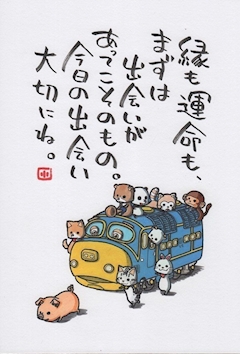 縁も運命も、
まずは
出会いが
あってこそのもの。
今日の出会い
大切にね。